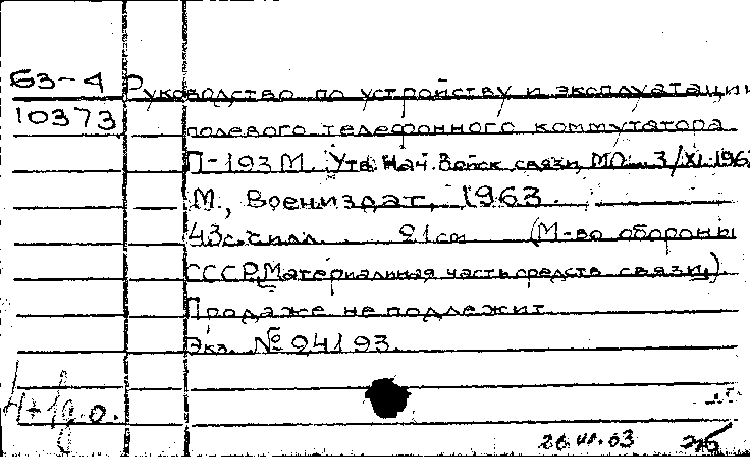 63-4 Руководство по устройству и эксплуатации
10373 полевого телефонного коммутатора
П-193М. Утв. Нач. Войск связи МО 3/XI-196
М., Воениздат, 1963.
43с. с илл. 21см (М-во обороны
СССР. Материальная часть средств связи)
Продаже не подлежит
Экз. № 94193.